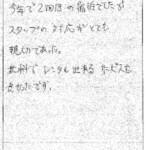 今年で2回目の宿泊でしたが
スタッフの対応がとても
親しかであった。
無料でレンタル出来るサービスも
きせたです。